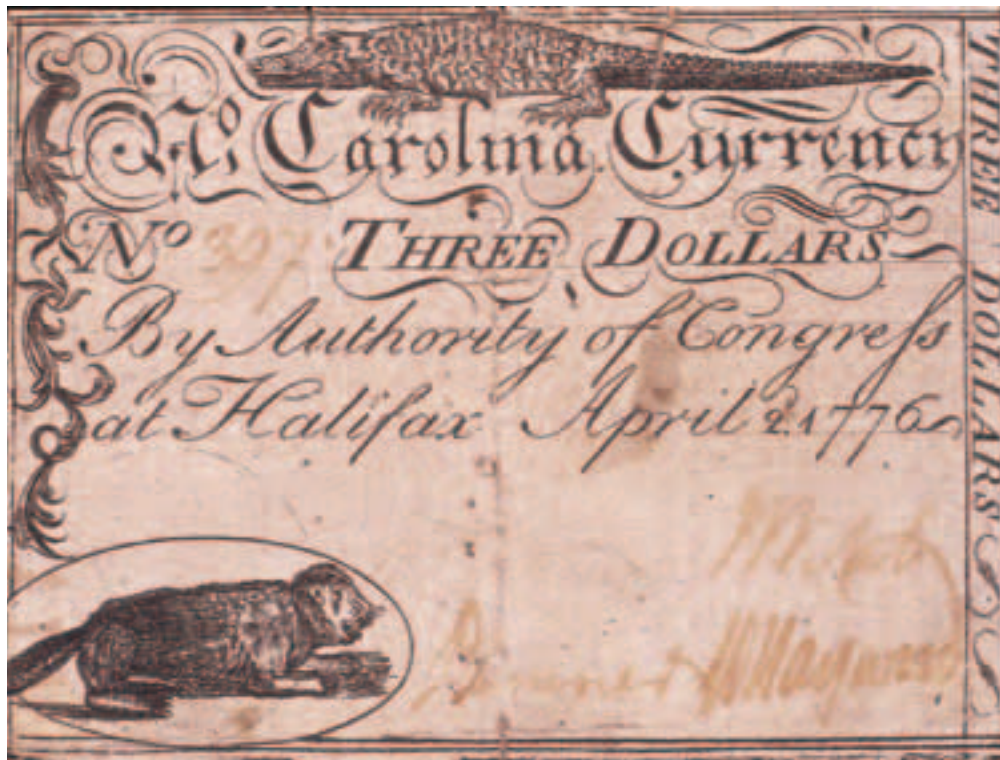 No. Carolina Currency
No THREE DOLLARS
By Authority of Congreſs
at Halifax April 2. 1776
THREE DOLLARS